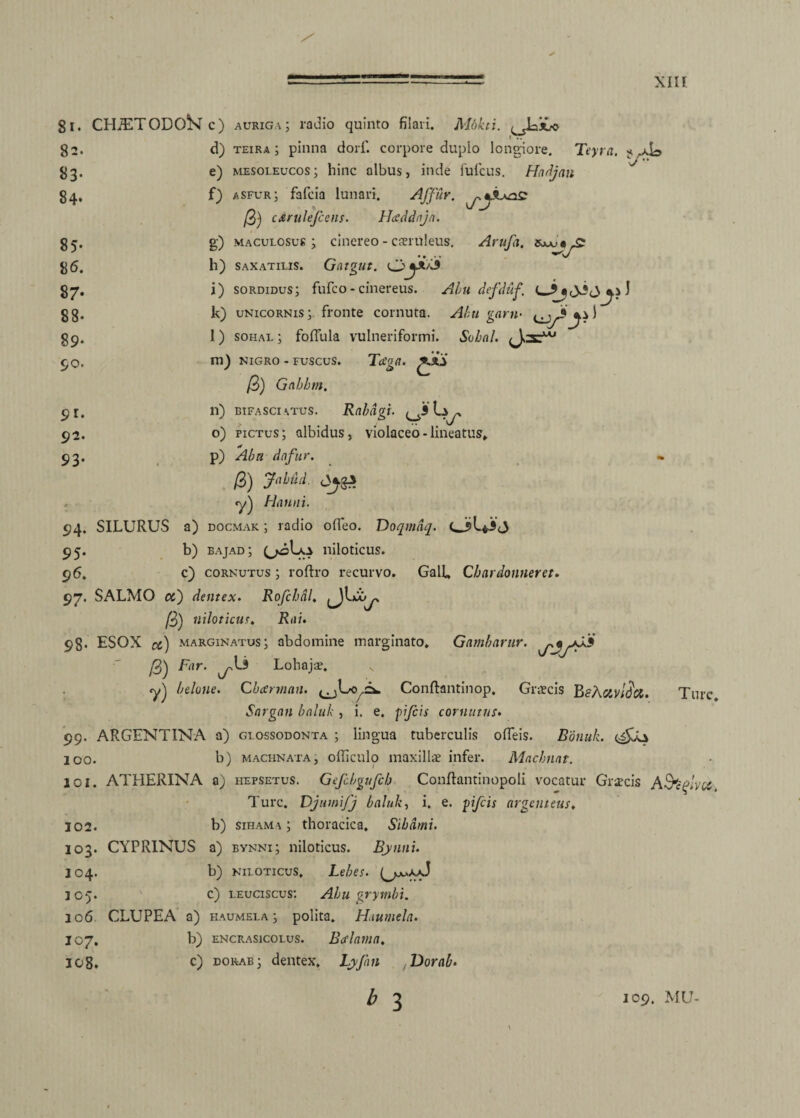 XIII
81. CHÆTODON c) AURIGA; radio quinto filari. Môkti.
82. d) TEIRA; pinna dorſ. corpore duplo longiore. Teyra. طيره
83. e) MESOLEUCOS; hinc albus, inde fuſcus. Hadjan
84. f) ASFUR; faſcia lunari. Aſſûr.
β) cæruleſcens. Hæddaja.
85. g) MACULOSUS; cinereo-cæruleus. Aruſa. عروسه
86. h) SAXATILIS. Gatgut.
87. i) SORDIDUS; fuſco-cinereus. Abu defdûf. ابو دفدوف
88. k) UNICORNIS; fronte cornuta. Abu garn. ابو قرن
89. l) SOHAL; foſſula vulneriformi. Sohal. سحل
90. m) NIGRO-FUSCUS. Tæga.
β) Gahhm.
91. n) BIFASCIATUS. Rabâgi.
92. o) PICTUS; albidus, violaceo-lineatus.
93. p) Abu dafur.
β) Jahûd. يهود
γ) Hanni.
94. SILURUS a) DOCMAK; radio oſſeo. Doqmâq. دقماق
95. b) BAJAD; بياض niloticus.
96. c) CORNUTUS; roſtro recurvo. Gall. Chardonneret.
97. SALMO α) dentex. Roſchâl. رشال
β) niloticus. Rai.
98. ESOX α) MARGINATUS; abdomine marginato. Gambarur.
β) Far. فار Lohajæ.
γ) belone. Chærman. خرمان Conſtantinop. Græcis Βελανίδα. Turc.
Sargan baluk, i. e. piſcis cornutus.
99. ARGENTINA a) GLOSSODONTA; lingua tuberculis oſſeis. Bônuk. بنك
100. b) MACHNATA; oſſiculo maxillæ infer. Machnat.
101. ATHERINA a) HEPSETUS. Geſchguſch Conſtantinopoli vocatur Græcis
Turc. Djumiſj baluk, i. e. piſcis argenteus.
102. b) SIHAMA; thoracica. Sihâmi.
103. CYPRINUS a) BYNNI; niloticus. Bynni.
104. b) NILOTICUS. Lebes. لبيس
105. c) LEUCISCUS: Abu grymbi.
106. CLUPEA a) HAUMELA; polita. Haumela.
107. b) ENCRASICOLUS. Bælama.
108. c) DORAB; dentex. Lyſan, Dorab.
b 3
109. MU-